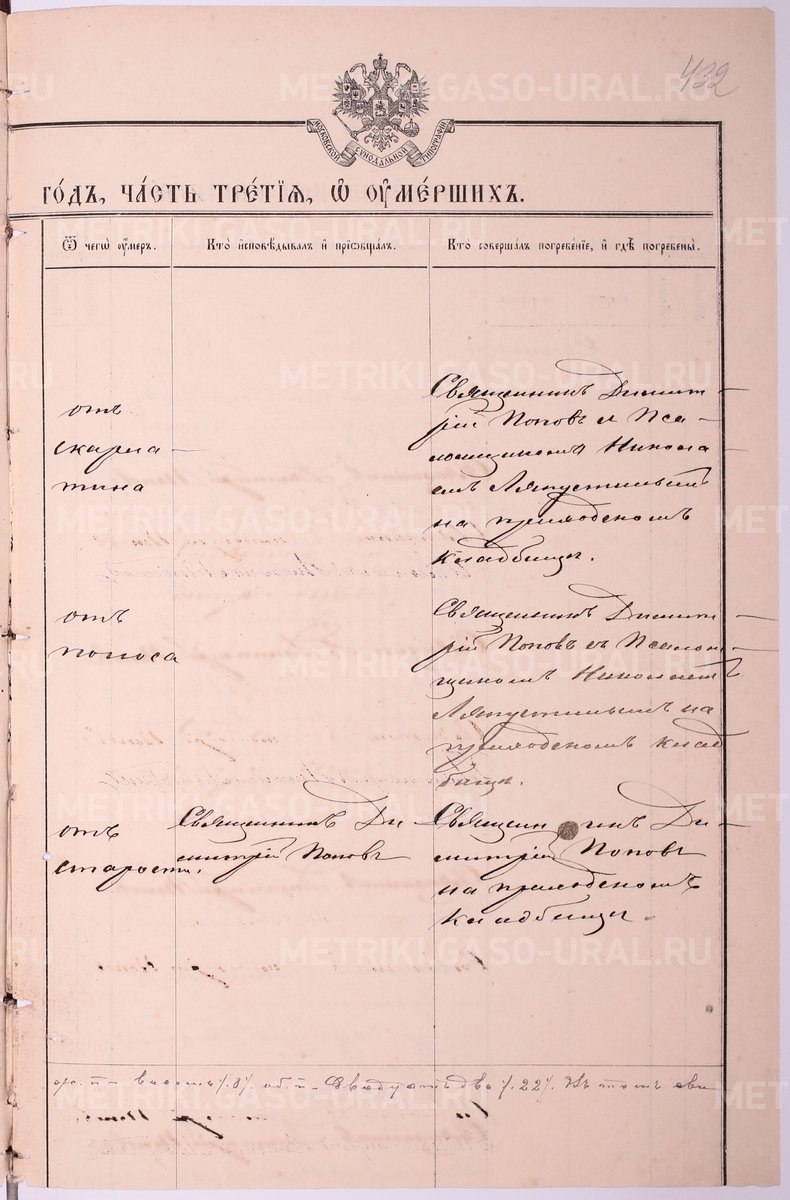 432
МОСКОВСКОЙ СѴНОДАЛЬНОЙ ТИПОГРАФІИ
ГО́ДЪ, ЧА́СТЬ ТРЕ́ТІѦ, Ѡ҆ ОУ҆МЕ́РШИХЪ.
Ѿ чегѡ̀ оу҆́меръ.
Кто̀ и҆сповѣ́дывалъ и҆ прїѡбща́лъ.
Кто̀ соверша́лъ погребе́нїе, и҆ гдѣ̀ погребены̀.
отъ
скарла-
тина
Священникъ Димит-
рій Поповъ и Пса-
ломщикомъ Никола-
емъ Ляпустинымъ
на приходскомъ
кладбищѣ.
отъ
поноса
Священникъ Димит-
рій Поповъ съ Псалом-
щикомъ Николаемъ
Ляпустинымъ на
приходскомъ клад
бищѣ.
отъ
старости.
Священникъ Ди-
митрій Поповъ
Священникъ Ди-
митрій Поповъ
на приходскомъ
кладбищѣ.
восемь /.8/. об. п. Двадцать два /.22/.
METRIKI.GASO-URAL.RU